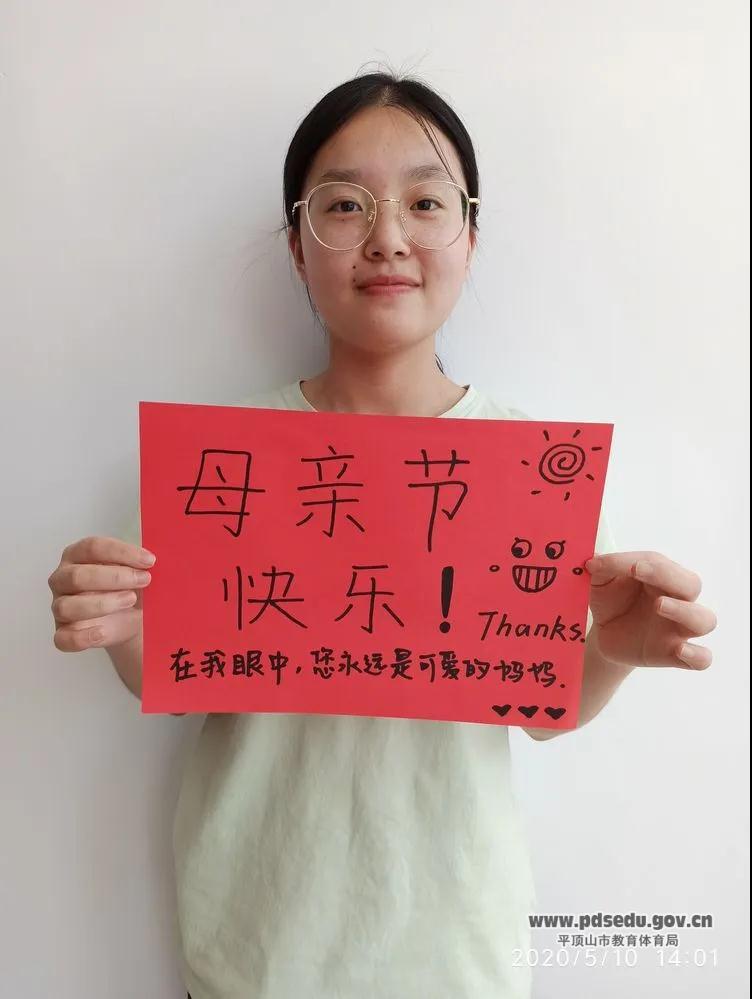 母亲节
快乐！
Thanks.
在我眼中，您永远是可爱的妈妈.
www.pdsedu.gov.cn
平顶山市教育体育局
2020/5/10 14:01